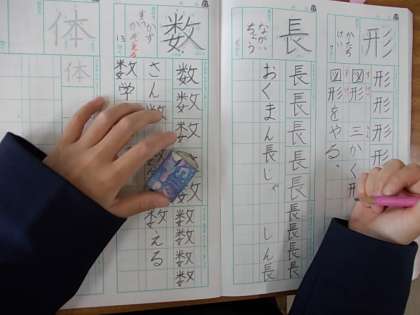 形
かたち
けい
形形形形
図形 三かく形
図形をやる。
長
ながい
ちょう
長長長長長長長長長
おくまん長じゃ しん長
数
かず
かぞえる
数数数数数数数数
さん数 数える
数学
体
体